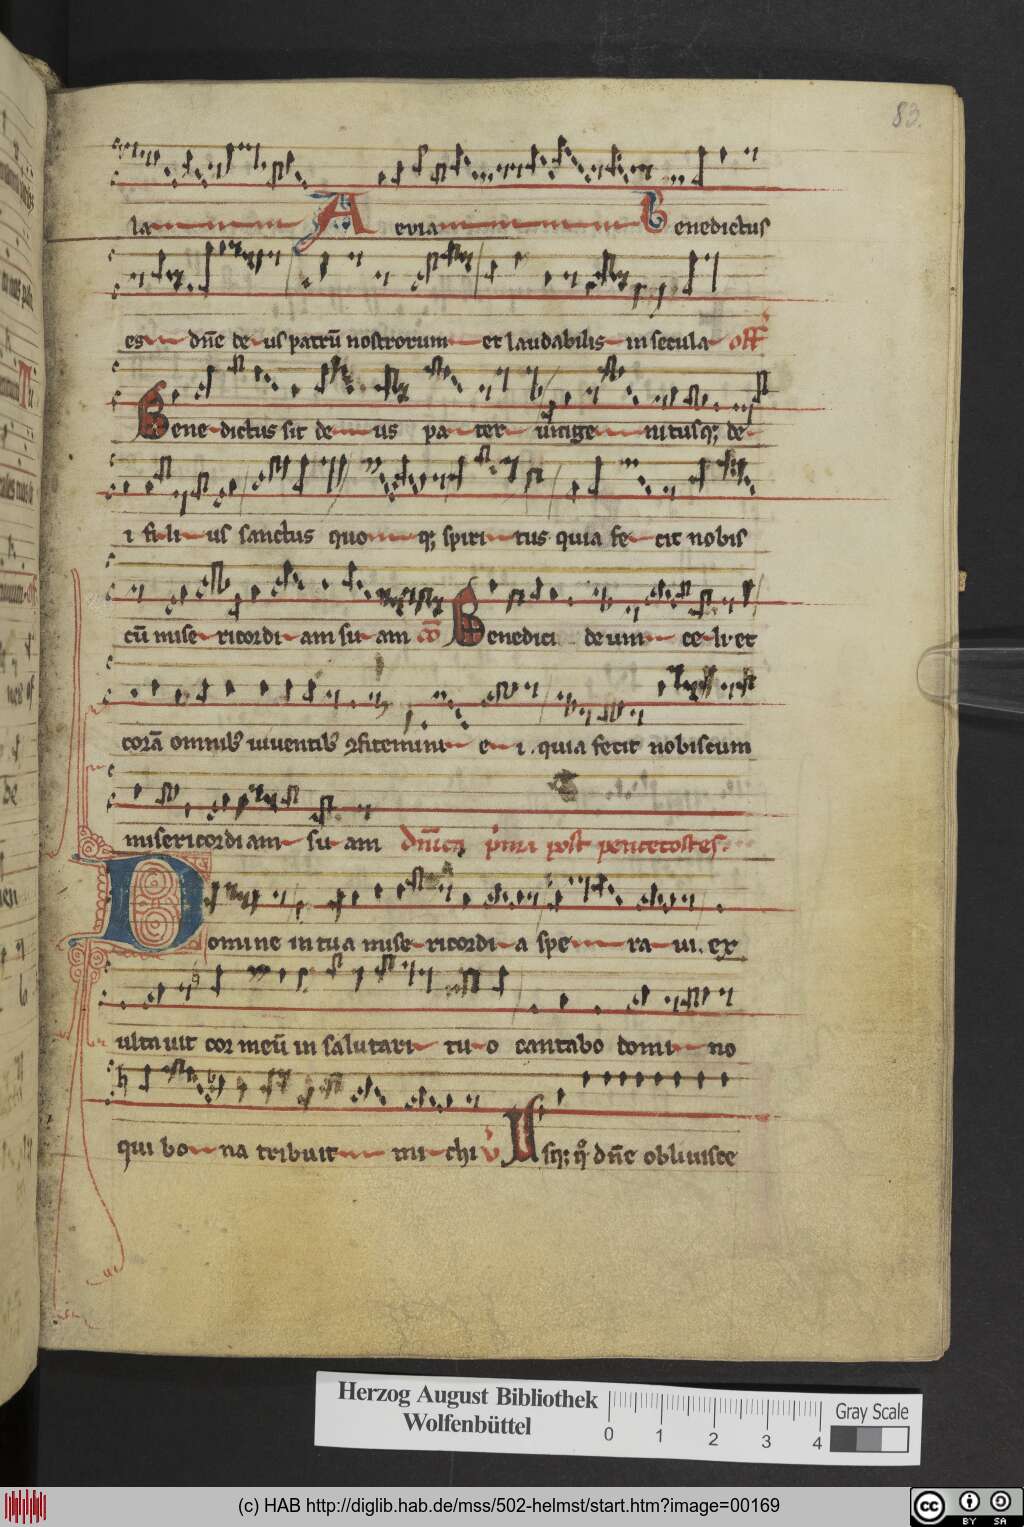 83.
la A evia Benedictus
es dn̄e de us patrū nostrorum et laudabilis in secula off
Bene dictus sit de us pa ter unige nitusq; de
i fi li us sanctus quo q; spiri tus quia fe cit nobis
cū mise ricordi am su am cō Benedici deum ce li et
corā omnib; viventib; ꝯfitemini e i . quia fecit nobiscum
misericordiam su am dn̄ica p'ma post pentecostes .
Domine in tua mise ricordi a spe ra vi . ex
ultavit cor meū in salutari tu o cantabo domi no
qui bo na tribuit mi chi v Usq; q̊ dn̄e oblivisce
Herzog August Bibliothek
Wolfenbüttel
0 1 2 3 4
Gray Scale
(c) HAB http://diglib.hab.de/mss/502-helmst/start.htm?image=00169
cc BY SA